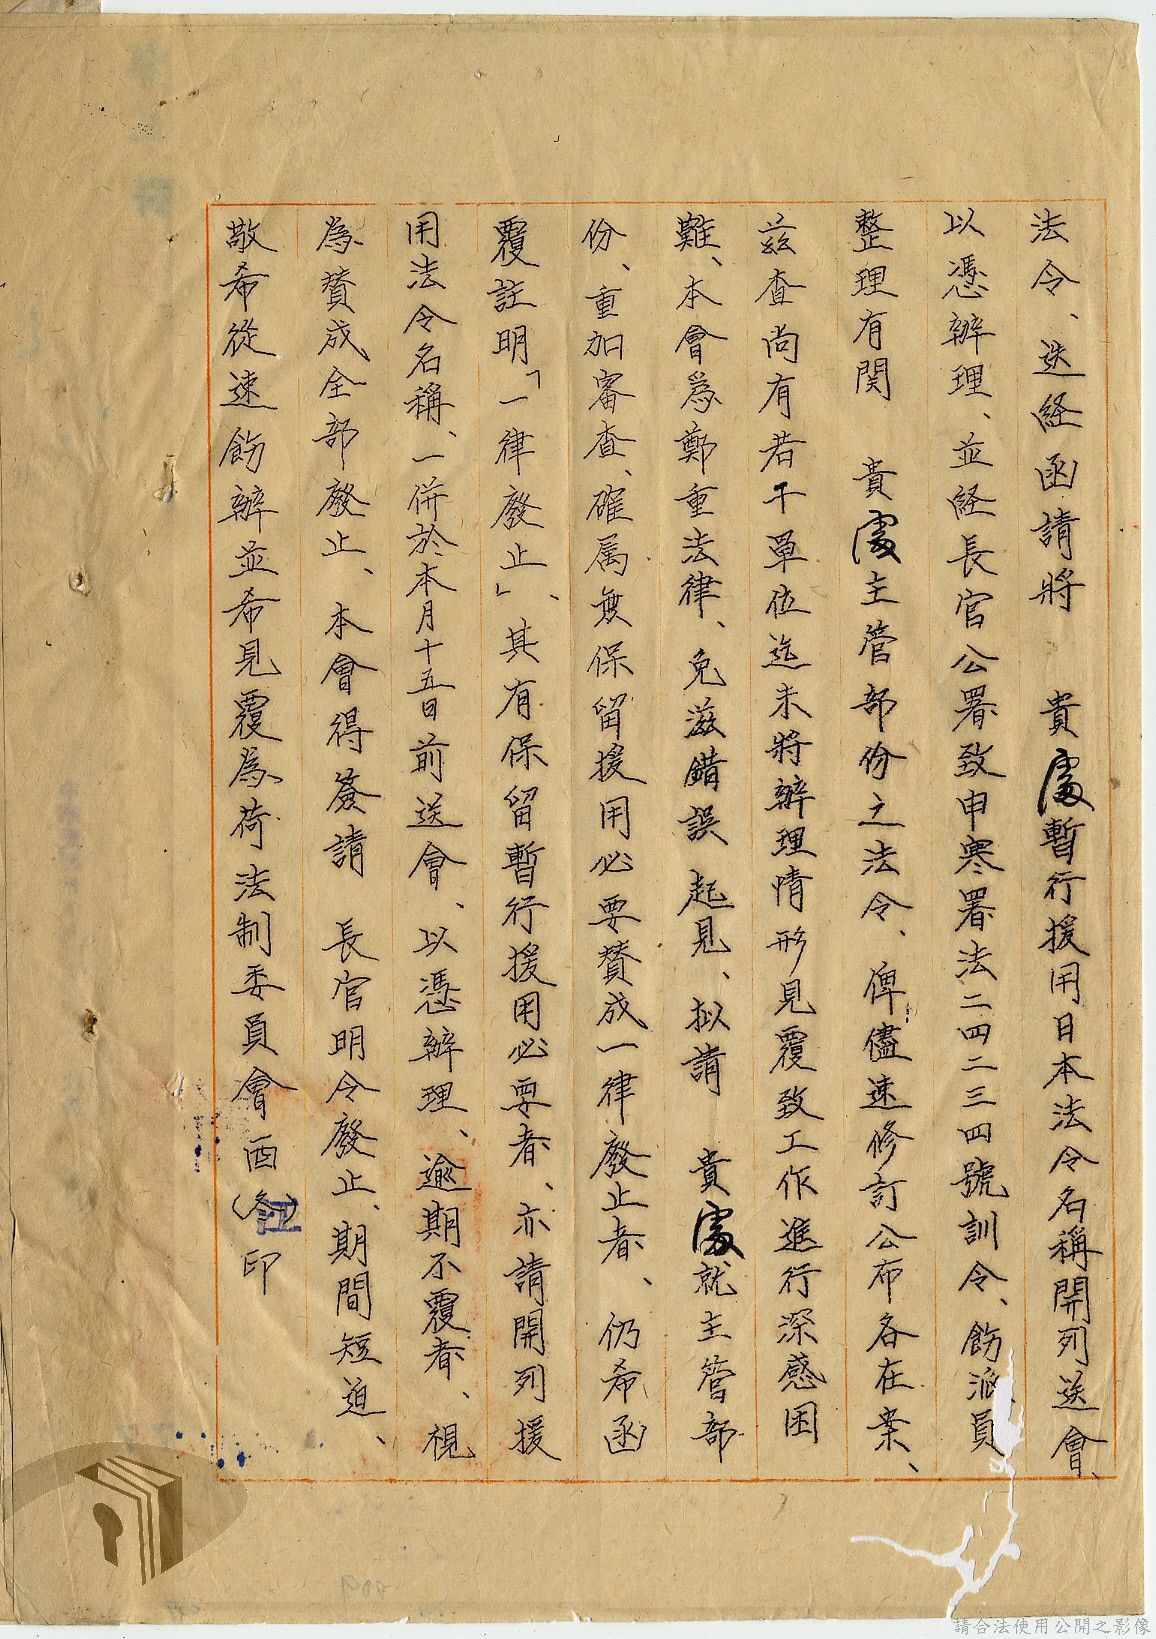 法令、迭経函請將　貴處暫行援用日本法令名稱開列送會、
以憑辦理、並経長官公署致申寒署法二四二三四號訓令、飭派員
整理有関　貴處主管部份之法令、俾儘速修訂公布各在案、
茲查尚有若干單位迄未將辦理情形見覆致工作進行深感困
難、本會為鄭重法律、免滋錯誤起見、拟請　貴處就主管部
份、重加審查、確属無保留援用必要贊成一律廢止者、仍希函
覆註明「一律廢止」、其有保留暫行援用必要者、亦請開列援
用法令名稱、一併於本月十五日前送會、以憑辦理、逾期不覆者、視
為贊成全部廢止、本會得簽請　長官明令廢止、期間短迫、
敬希從速飭辦並希見覆為荷法制委員會酉（冬）江印
請合法使用公開之影像